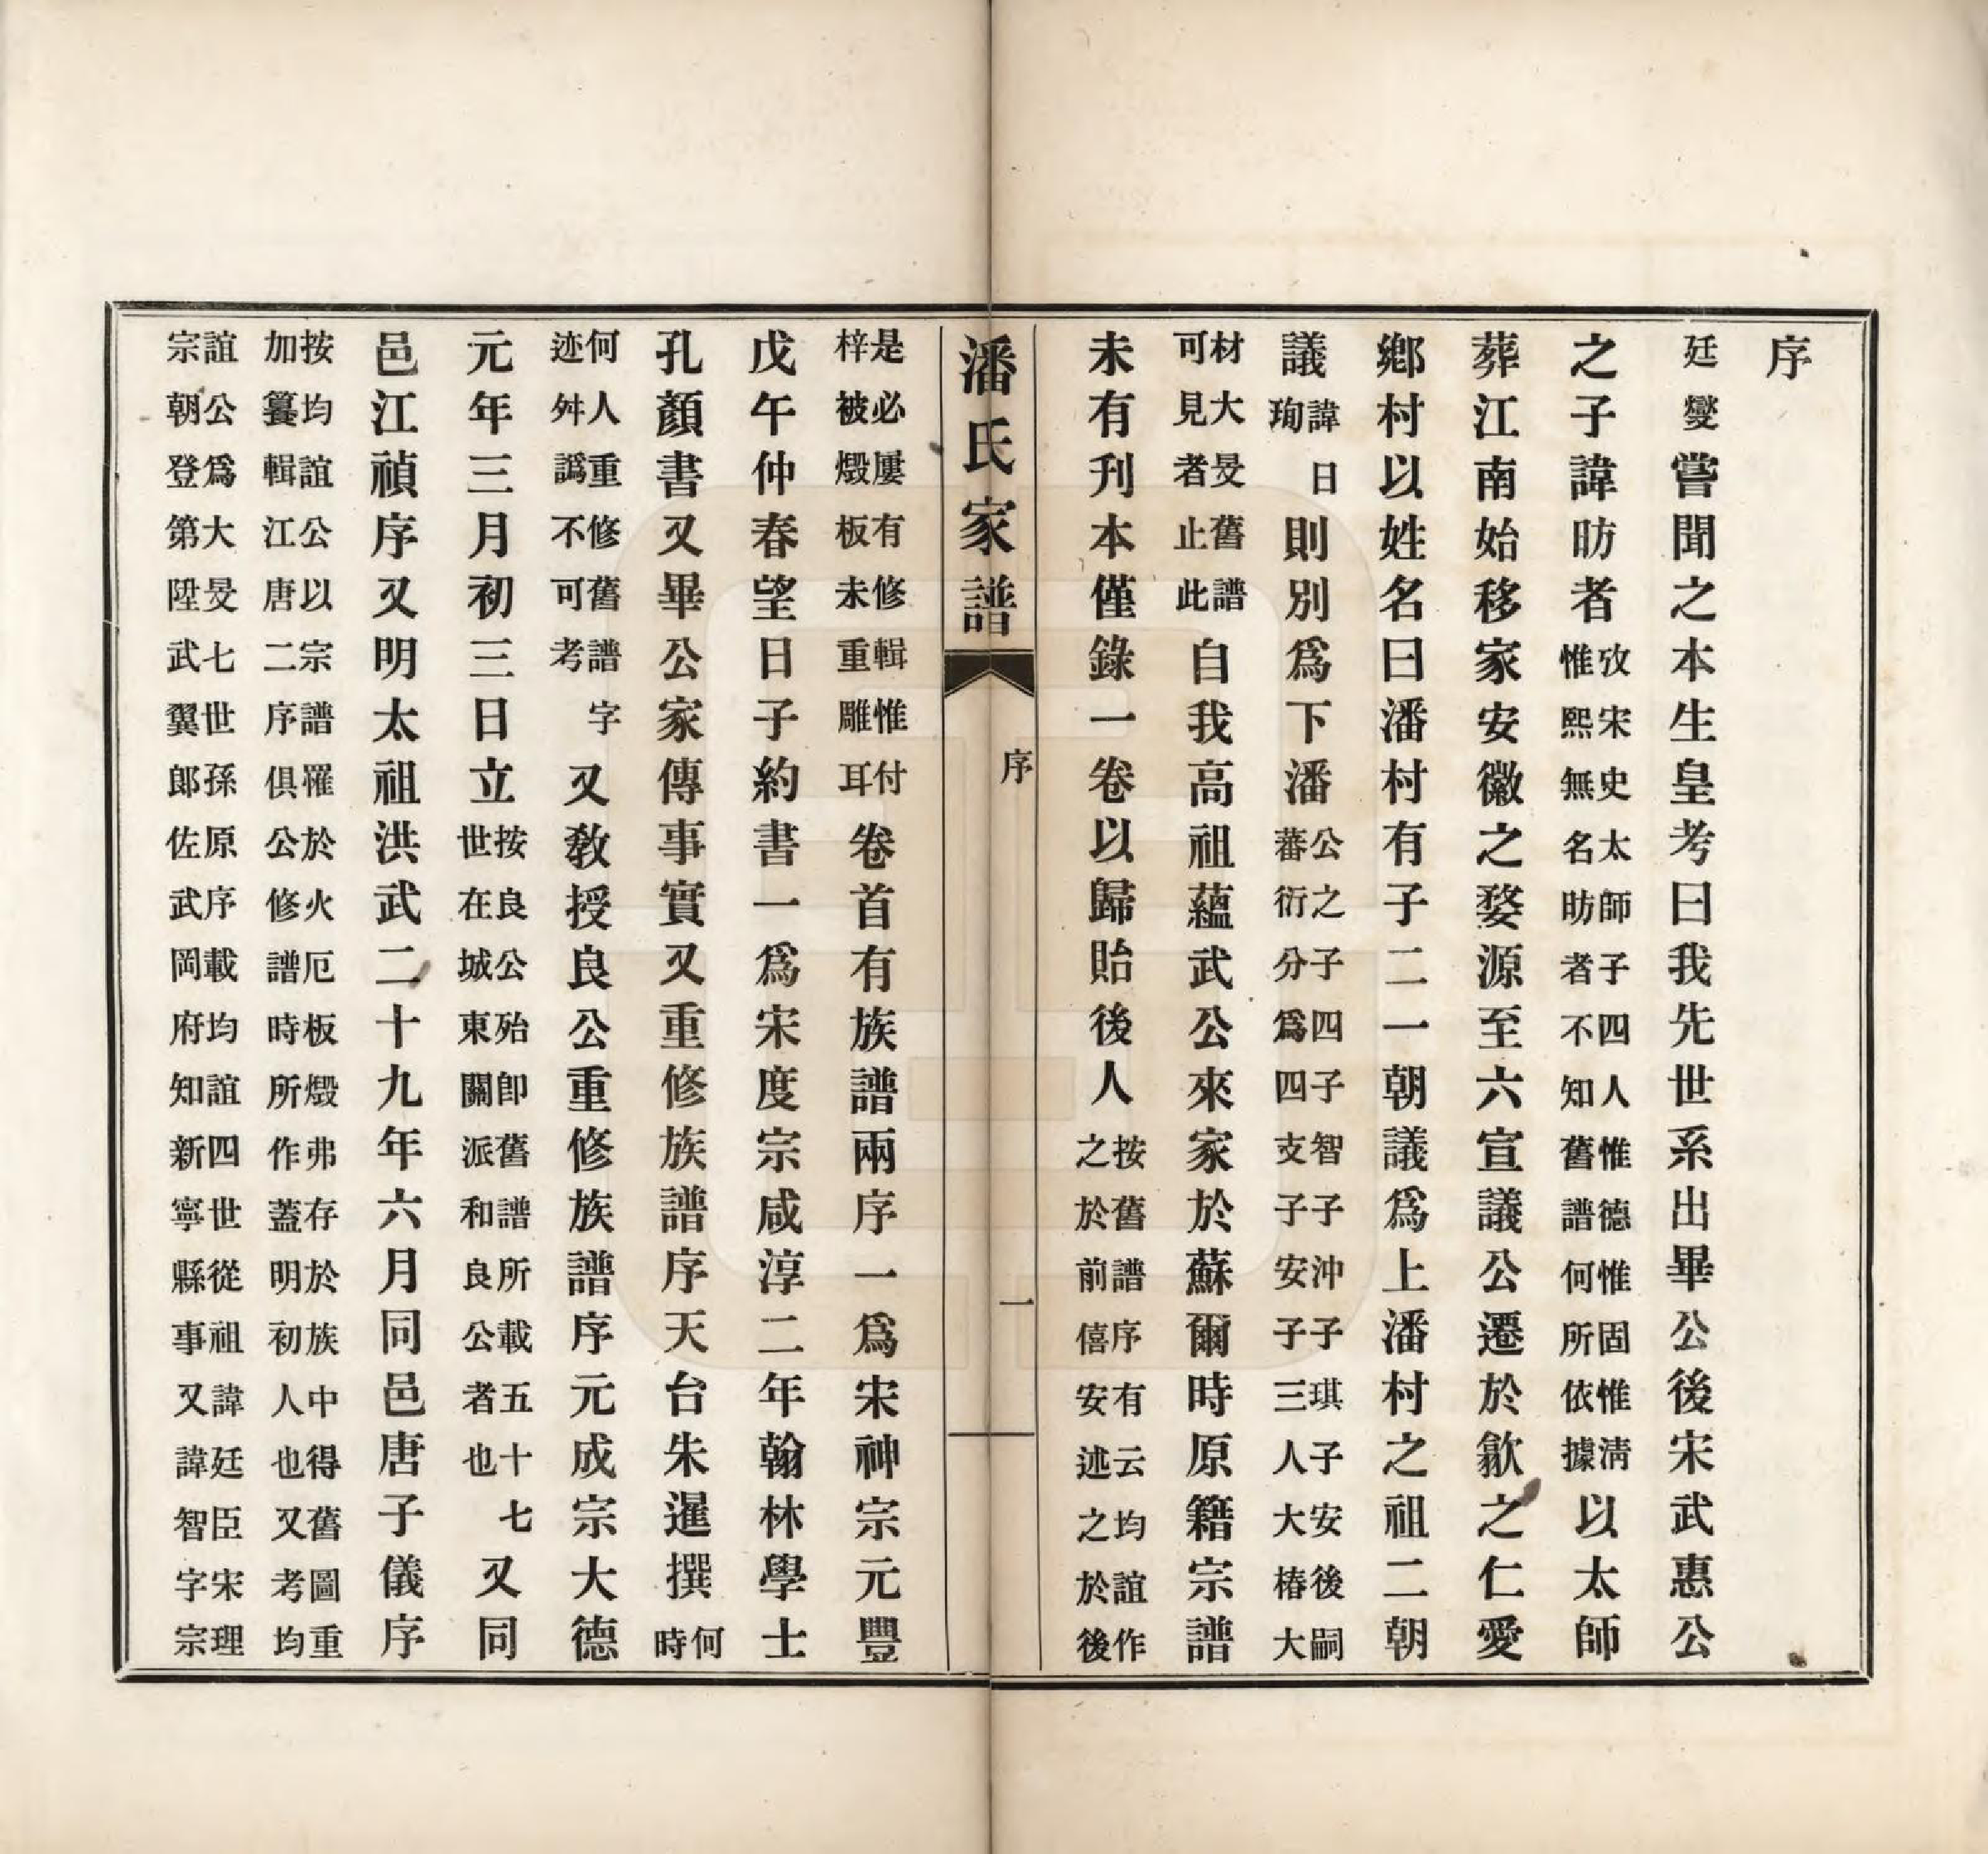 序
廷燮嘗聞之本生皇考曰我先世系出畢公後宋武惠公
之子諱昉者攷宋史太師子四人惟德惟固惟清惟熙無名昉者不知舊譜何所依據以太師
葬江南始移家安徽之婺源至六宣議公遷於歙之仁愛
鄉村以姓名曰潘村有子二一朝議爲上潘村之祖二朝
議諱珣曰則別爲下潘公之子四子智子沖子琪子安後嗣蕃衍分爲四支子子安子子三人大椿大
材大旻舊譜可見者止此自我高祖蘊武公來家於蘇爾時原籍宗譜
未有刊本僅錄一卷以歸貽後人按舊譜序有云均誼作之於前僖安述之於後
潘氏家譜 序 一
是必屢有修輯惟付梓被燬板未重雕耳卷首有族譜兩序一爲宋神宗元豐
戊午仲春望日子約書一爲宋度宗咸淳二年翰林學士
孔顏書又畢公家傳事實又重修族譜序天台朱暹撰何時
何人重修舊譜字迹舛譌不可考又敎授良公重修族譜序元成宗大德
元年三月初三日立按良公殆卽舊譜所載五十七世在城東關派和良公者也又同
邑江禎序又明太祖洪武二十九年六月同邑唐子儀序
按均誼公以宗譜罹於火厄板燬弗存於族中得舊圖重加纂輯江唐二序俱公修譜時所作蓋明初人也又考均
誼公爲大旻七世孫原序載均誼四世從祖諱廷臣宋理宗朝登第陞武翼郎佐武岡府知新寧縣事又諱智字宗